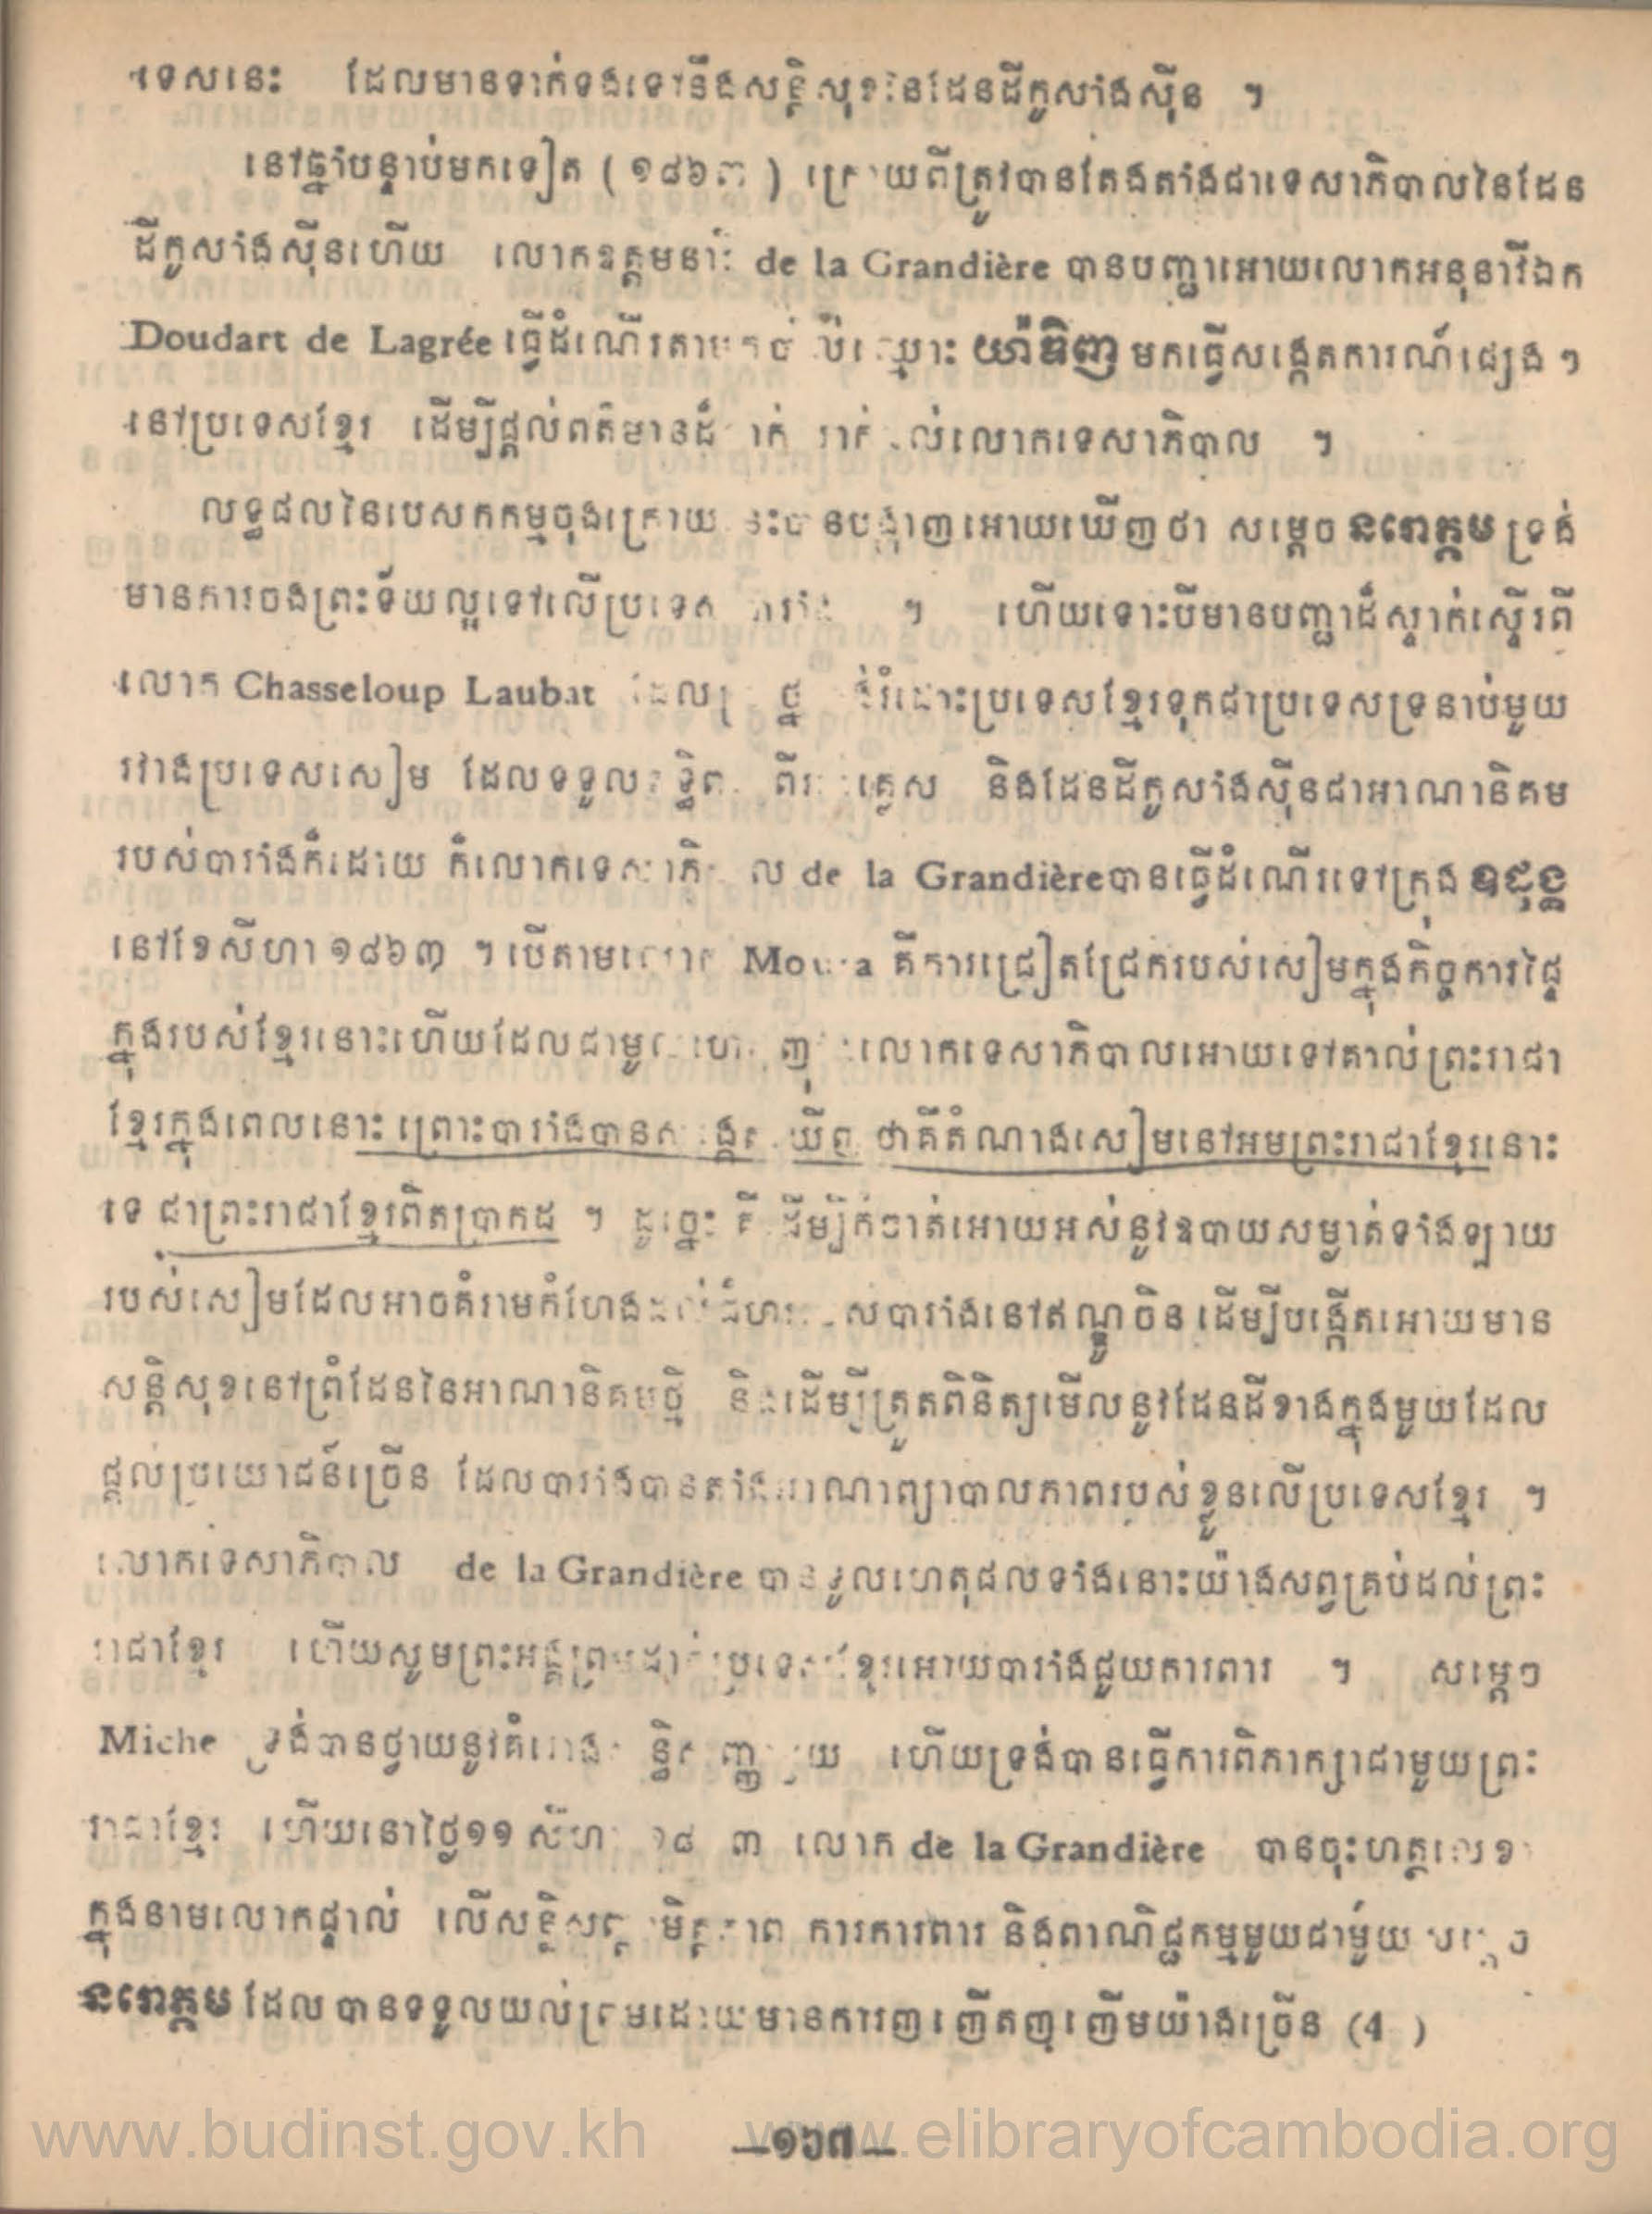 ទេសនេះ ដែលមានទាក់ទងទៅនឹងសន្តិសុខនៃដែនដីកូសាំងស៊ីន ។
នៅឆ្នាំបន្ទាប់មកទៀត ( ១៨៦៣ ) ក្រោយពីត្រូវបានតែងតាំងជាទេសាភិបាលនៃដែន
ដីកូសាំងស៊ីនហើយ លោកឧត្តមនាវី de la Grandière បានបញ្ជាអោយលោកអនុនាវីឯក
Doudart de Lagrée ធ្វើដំណើរតាម ឈ្មោះ យ៉ាឌិញ មកធ្វើសង្កេតការណ៍ផ្សេង ៗ
នៅប្រទេសខ្មែរ ដើម្បីផ្តល់ពត៌មានដ៏ លោកទេសាភិបាល ។
លទ្ធផលនៃបេសកកម្មចុងក្រោយនេះបានបង្ហាញអោយឃើញថា សម្តេច នរោត្តម ទ្រង់
មានការចងព្រះទ័យល្អទៅលើប្រទេសបារាំង ។ ហើយទោះបីមានបញ្ជាដ៏ស្ទាក់ស្ទើរពី
លោក Chasseloup Laubat ដែល រំដោះប្រទេសខ្មែរទុកជាប្រទេសទ្រនាប់មួយ
រវាងប្រទេសសៀម ដែលទទួលឥទ្ធិពលពីអង់គ្លេស និងដែនដីកូសាំងស៊ីនជាអាណានិគម
របស់បារាំងក៏ដោយ ក៏លោកទេសាភិបាល de la Grandière បានធ្វើដំណើរទៅក្រុង ឧដុង្គ
នៅខែសីហា ១៨៦៣ ។ បើតាមលោក Moura គឺការជ្រៀតជ្រែករបស់សៀមក្នុងកិច្ចការផ្ទៃ
ក្នុងរបស់ខ្មែរនោះហើយដែលជាមូលហេតុ លោកទេសាភិបាលអោយទៅគាល់ព្រះរាជា
ខ្មែរក្នុងពេលនោះ ព្រោះបារាំងបានសង្កេតឃើញ ថាគឺតំណាងសៀមនៅអមព្រះរាជាខ្មែរនោះ
ទេ ជាព្រះរាជាខ្មែរពិតប្រាកដ ។ ដូច្នេះ គឺដើម្បីកំចាត់អោយអស់នូវឧបាយសម្ងាត់ទាំងឡាយ
របស់សៀមដែលអាចគំរាមកំហែងដល់ជំហររបស់បារាំងនៅឥណ្ឌូចិន ដើម្បីបង្កើតអោយមាន
សន្តិសុខនៅព្រំដែននៃអាណានិគមថ្មី និងដើម្បីត្រួតពិនិត្យមើលនូវដែនដីខាងក្នុងមួយដែល
ផ្តល់ប្រយោជន៍ច្រើន ដែលបារាំងបានតាំងអាណាព្យាបាលភាពរបស់ខ្លួនលើប្រទេសខ្មែរ ។
លោកទេសាភិបាល de la Grandière បានទូលហេតុផលទាំងនោះយ៉ាងសព្វគ្រប់ដល់ព្រះ
រាជាខ្មែរ ហើយសូមព្រះអង្គព្រមដាក់ប្រទេសខ្មែរអោយបារាំងជួយការពារ ។ សម្តេច
Miche ទ្រង់បានថ្វាយនូវគំរោងសន្ធិសញ្ញាមួយ ហើយទ្រង់បានធ្វើការពិភាក្សាជាមួយព្រះ
រាជាខ្មែរ ហើយនៅថ្ងៃ១១ សីហា ១៨៦៣ លោក de la Grandière បានចុះហត្ថលេខា
ក្នុងនាមលោកផ្ទាល់ លើសន្ធិសញ្ញាមិត្តភាព ការការពារ និងពាណិជ្ជកម្មមួយជាមួយ សម្តេច
នរោត្តម ដែលបានទទួលយល់ព្រមដោយមានការញញើតញញើមយ៉ាងច្រើន (4 )
—១៦៣—
www.budinst.gov.kh www.elibraryofcambodia.org